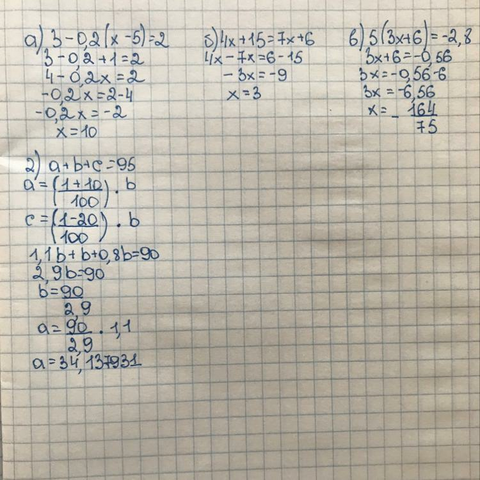 а) 3-0,2(x-5)=2
3-0,2+1=2
4-0,2x=2
-0,2x=2-4
-0,2x=-2
x=10
б) 4x+15=7x+6
4x-7x=6-15
-3x=-9
x=3
в) 5(3x+6)=-2,8
3x+6=-0,56
3x=-0,56-6
3x=-6,56
x=-164/75
2) a+b+c=95
a=(1+10/100)·b
c=(1-20/100)·b
1,1b+b+0,8b=90
2,9b=90
b=90/2,9
a=90/2,9·1,1
a=34,137931